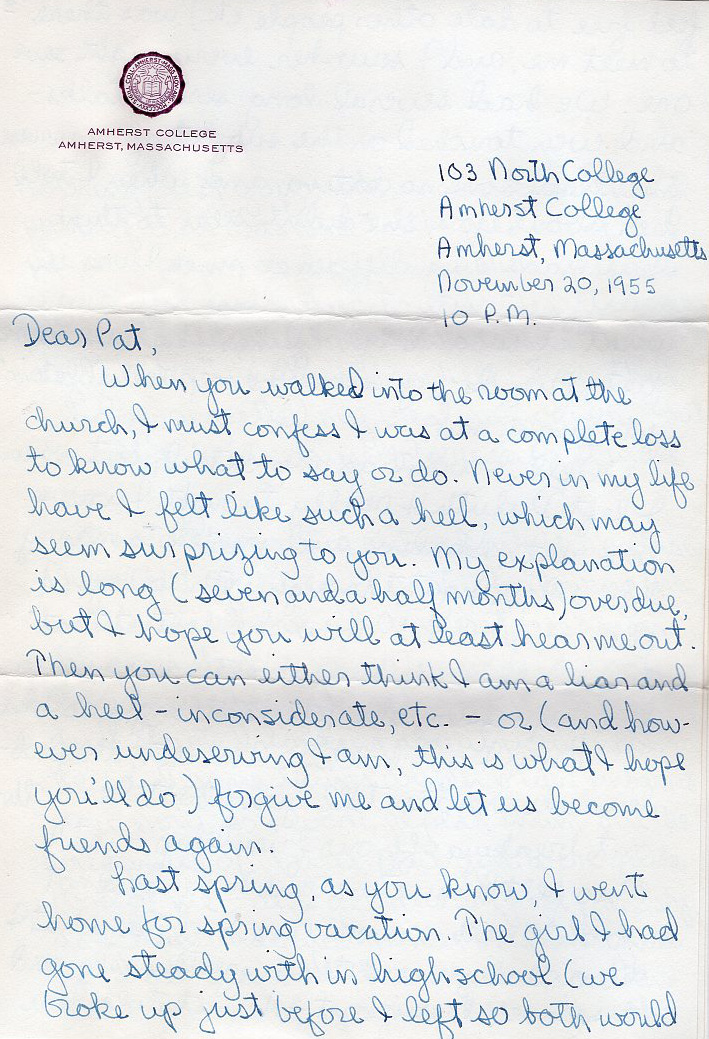 AMHERST COLLEGE
AMHERST, MASSACHUSETTS
103 North College
Amherst College
Amherst, Massachusetts
November 20, 1955
10 P.M.
Dear Pat,
When you walked into the room at the
church, I must confess I was at a complete loss
to know what to say or do. Never in my life
have I felt like such a heel, which may
seem surprizing to you. My explanation
is long (seven and a half months) overdue,
but I hope you will at least hear me out.
Then you can either think I am a liar and
a heel - inconsiderate, etc. - or (and how-
ever undeserving I am, this is what I hope
you'll do) forgive me and let us become
friends again.
Last spring, as you know, I went
home for spring vacation. The girl I had
gone steady with in high school (we
broke up just before I left so both would